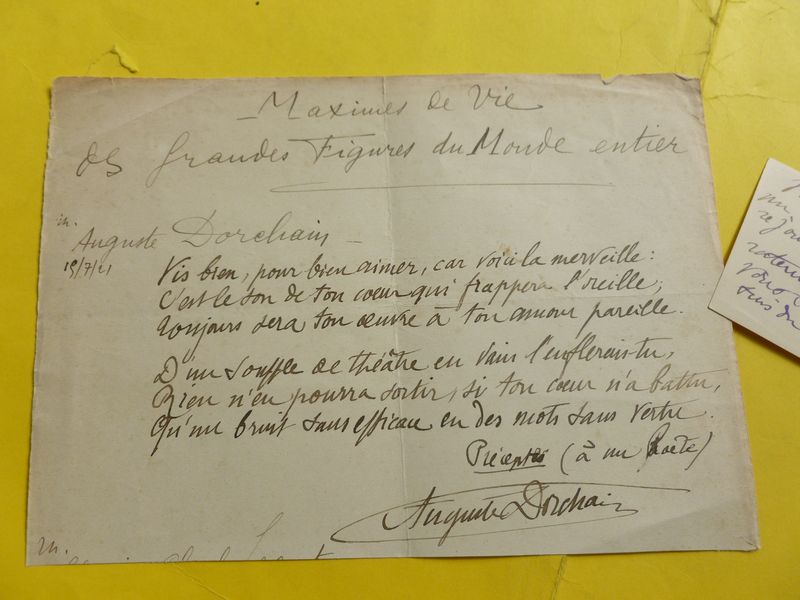 Maximes de Vie
des Grandes Figures du Monde entier
m.
Auguste Dorchain –
19/7/21
Vis bien, pour bien aimer, car voici la merveille :
C'est le son de ton cœur qui frappera l'oreille,
Toujours sera ton œuvre à ton amour pareille.
D'un souffle de théâtre en vain l'enflerais-tu,
Rien n'en pourra sortir, si ton cœur n'a battu,
Qu'un bruit sans efficace en des mots sans vertu.
Préceptes (à un Poète)
Auguste Dorchain
m.